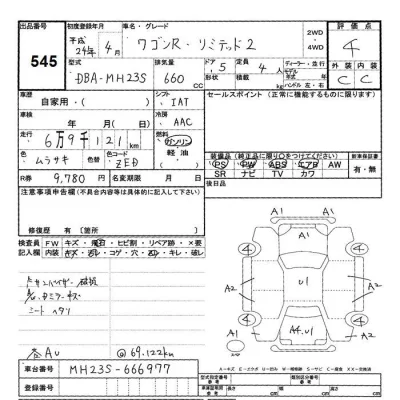 出品番号
545
初度登録年月
平成
24年 4月
車名・グレード
ワゴンR・リミテッド2
2WD
・4WD
評価点
4
型式
DBA-MH23S
排気量
660 CC
ドア 5
形状
定員 4人
積載 kg
ディーラー・並行
モデル年式
ハンドル 左・右
外装 内装
C C
車歴
自家用・( )
シフト
IAT
セールスポイント (正常に機能するものに限ります)
車検
年 月 日
冷房
AAC
走行
6万9千121km
燃料
ガソリン
軽油
色
ムラサキ
色替
色コード
ZED
R券
9,780円
名変期限 月 日
装備品(純正品に限り○をつけてください)
PS PW ABS エアB AW
SR ナビ TV カワ
新車保証書
有・無
注意事項申告欄(不具合内容等は具体的に記入して下さい)
後日品
修復歴 有( 箇所 )
検査員記入欄
FW キズ・飛石・ヒビ割・リペア跡・×要
内装 キズ・汚レ・コゲ・穴・凹・キレ・破レ
シート ヘタリ
@ 69.122km
車台番号
MH23S-666977
登録番号
A1
A1
4
4
A2
U1
A2
4
4
A1
A4.U1
A1
型式指定番号
参考
類別区分番号
参考
長さ cm
幅 cm
高さ cm